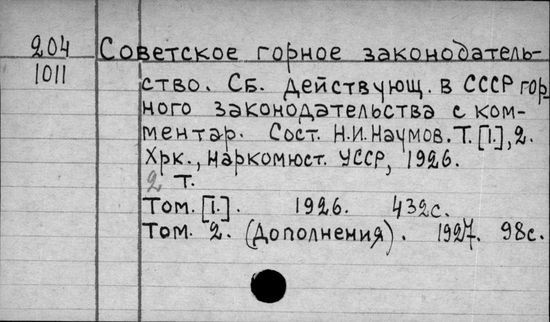 204 Советское горное законодатель-
1011 ство. Сб. действующ. в СССР гор
ного законодательства с ком-
ментар. Сост. Н.И.Наумов. Т.[1.],2.
Хрк., Наркомюст. УССР, 1926.
2 т.
Том.[1.]. 1926. 432с.
Том 2. (Дополнения). 1927. 98с.